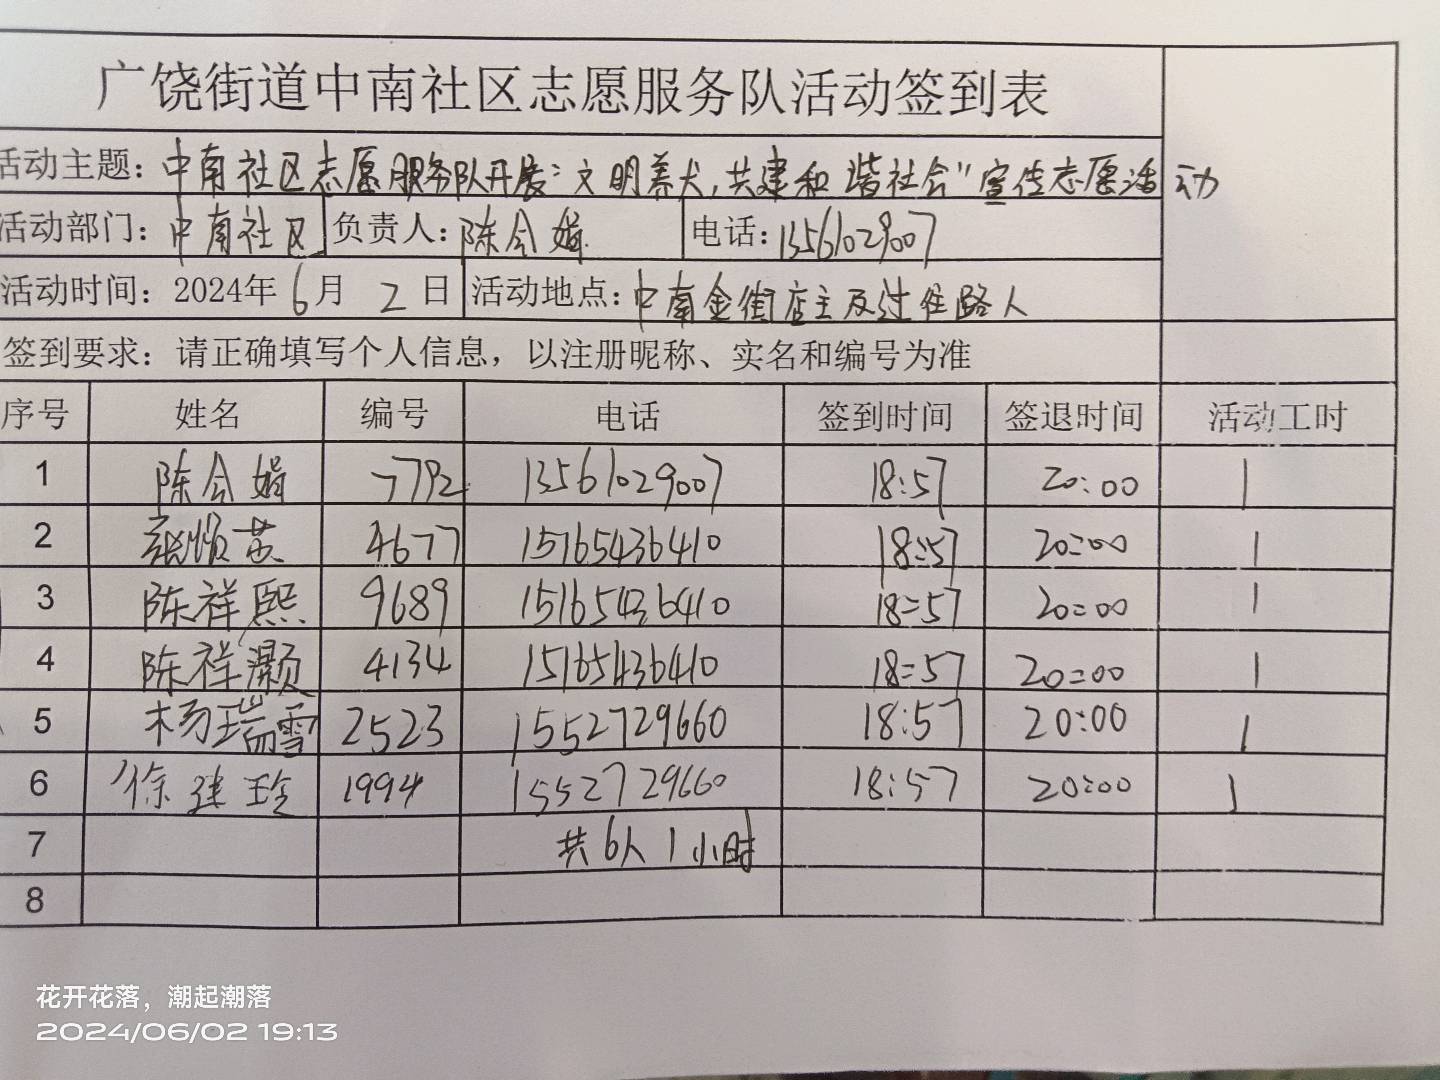 广饶街道中南社区志愿服务队活动签到表
活动主题：中南社区志愿服务队开展“文明养犬,共建和谐社会”宣传志愿活动
活动部门：中南社区 负责人：陈令娟 电话：13561029007
活动时间：2024年6月2日 活动地点：中南金街店主及过往路人
签到要求：请正确填写个人信息，以注册昵称、实名和编号为准
序号 姓名 编号 电话 签到时间 签退时间 活动工时
1 陈令娟 7792 13561029007 18:57 20:00 1
2 4677 15165436410 18:57 20:00 1
3 陈祥熙 9689 15165436410 18:57 20:00 1
4 陈祥灏 4134 15165436410 18:57 20:00 1
5 杨瑞雪 2523 15527729660 18:57 20:00 1
6 徐建玲 1994 15527729660 18:57 20:00 1
7 共6人1小时
8
花开花落，潮起潮落
2024/06/02 19:13